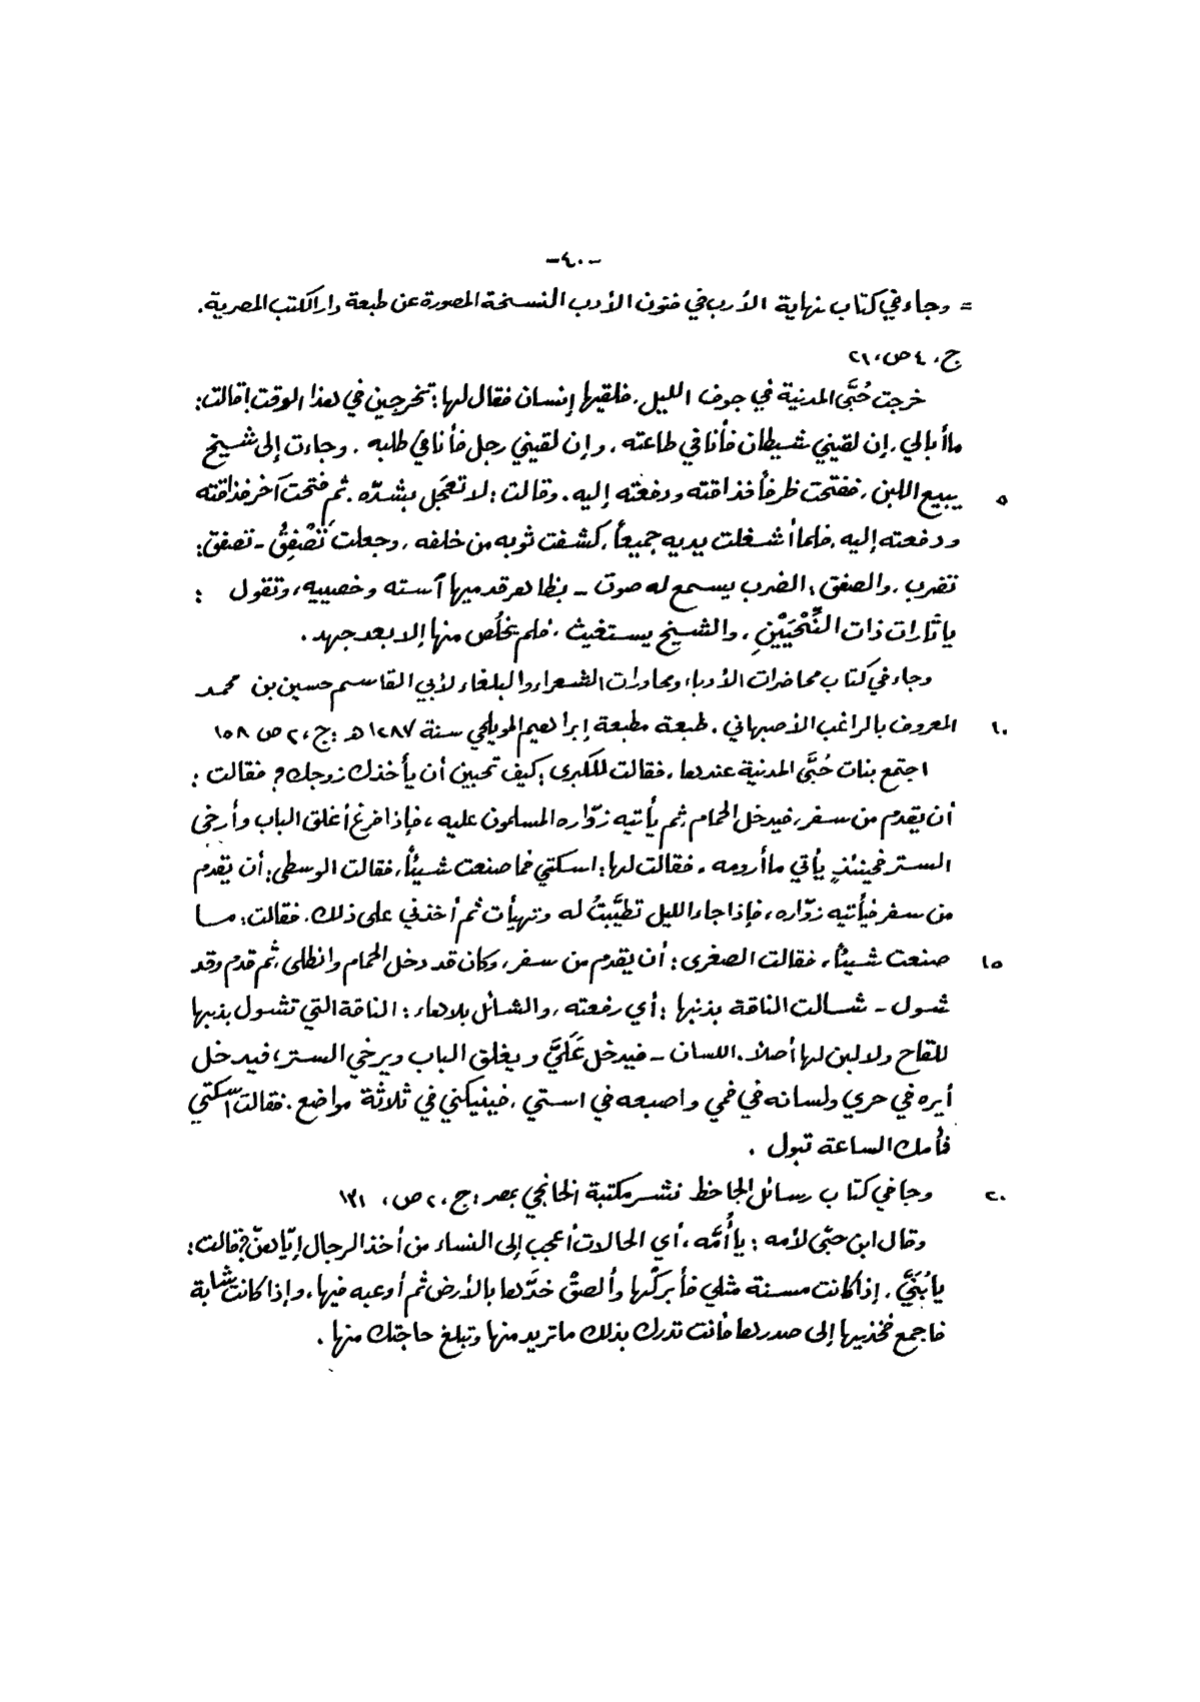 -٤٠٠-
= وجاء في كتاب نهاية الأرب في فنون الأدب النسخة المصورة عن طبعة دار الكتب المصرية.
ج، ٤ ص، ٢١
خرجت حُبَّى المدنية في جوف الليل، فلقيها إنسان فقال لها: تخرجين في هذا الوقت؟ قالت:
ما أبالي، إن لقيني شيطان فأنا في طاعته، وإن لقيني رجل فأنا في طلبه. وجاءت إلى شيخ
٥ يبيع اللبن، ففتحت ظرفاً فذاقته ودفعته إليه. وقالت: لا تعجل بشدّه. ثم فتحت آخر فذاقته
ودفعته إليه، فلما أشغلت يديه جميعاً، كشفت ثوبه من خلفه، وجعلت تَصْفِقُ - تصفق:
تضرب، والصفق: الضرب يسمع له صوت - بظاهر قدميها آسته وخصييه، وتقول :
يا ثارات ذات النِّحْيَيْنِ، والشيخ يستغيث، فلم يخلُص منها إلا بعد جهد.
وجاء في كتاب محاضرات الأدباء ومحاورات الشعراء والبلغاء لأبي القاسم حسين بن محمد
١٠ المعروف بالراغب الأصبهاني. طبعة مطبعة إبراهيم المويلحي سنة ١٢٨٧ هـ: ج، ٢ ص ١٥٨
اجتمع بنات حُبَّى المدنية عندها، فقالت للكبرى: كيف تحبين أن يأخذك زوجك؟ فقالت:
أن يقدم من سفر، فيدخل الحمام ثم يأتيه زوّاره المسلمون عليه، فإذا فرغ أغلق الباب وأرخى
الستر فحينئذٍ يأتي ما أرومه. فقالت لها: اسكتي فما صنعت شيئاً، فقالت الوسطى: أن يقدم
من سفر فيأتيه زوّاره، فإذا جاء الليل تطيَّبتُ له وتهيأت ثم أخذني على ذلك. فقالت: مـا
١٥ صنعت شيئاً، فقالت الصغرى: أن يقدم من سفر، وكان قد دخل الحمام وانطلى، ثم قدم وقد
شول - شالت الناقة بذنبها: أي رفعته، والشائل بلا هاء: الناقة التي تشول بذنبها
للقاح ولا لبن لها أصلاً. اللسان - فيدخل عَلَيَّ ويغلق الباب ويرخي الستر، فيدخل
أيره في حري ولسانه في فمي واصبعه في استي، فينيكني في ثلاثة مواضع. فقالت اسكتي
فأمك الساعة تبول .
٢٠ وجا في كتاب رسائل الجاحظ نشر مكتبة الخانجي بمصر: ج، ٢ ص، ١٣١
وقال ابن حبّى لأمه : يا أُمَّه، أي الحالات أعجب إلى النساء من أخذ الرجال إيّاهنّ؟ قالت:
يا بُنَيَّ، إذا كانت مسنة مثلي فأبركْها وألصقْ خدَّها بالأرض ثم أوعبه فيها، وإذا كانت شابة
فاجمع فخذيها إلى صدرها فأنت تدرك بذلك ما تريد منها وتبلغ حاجتك منها.